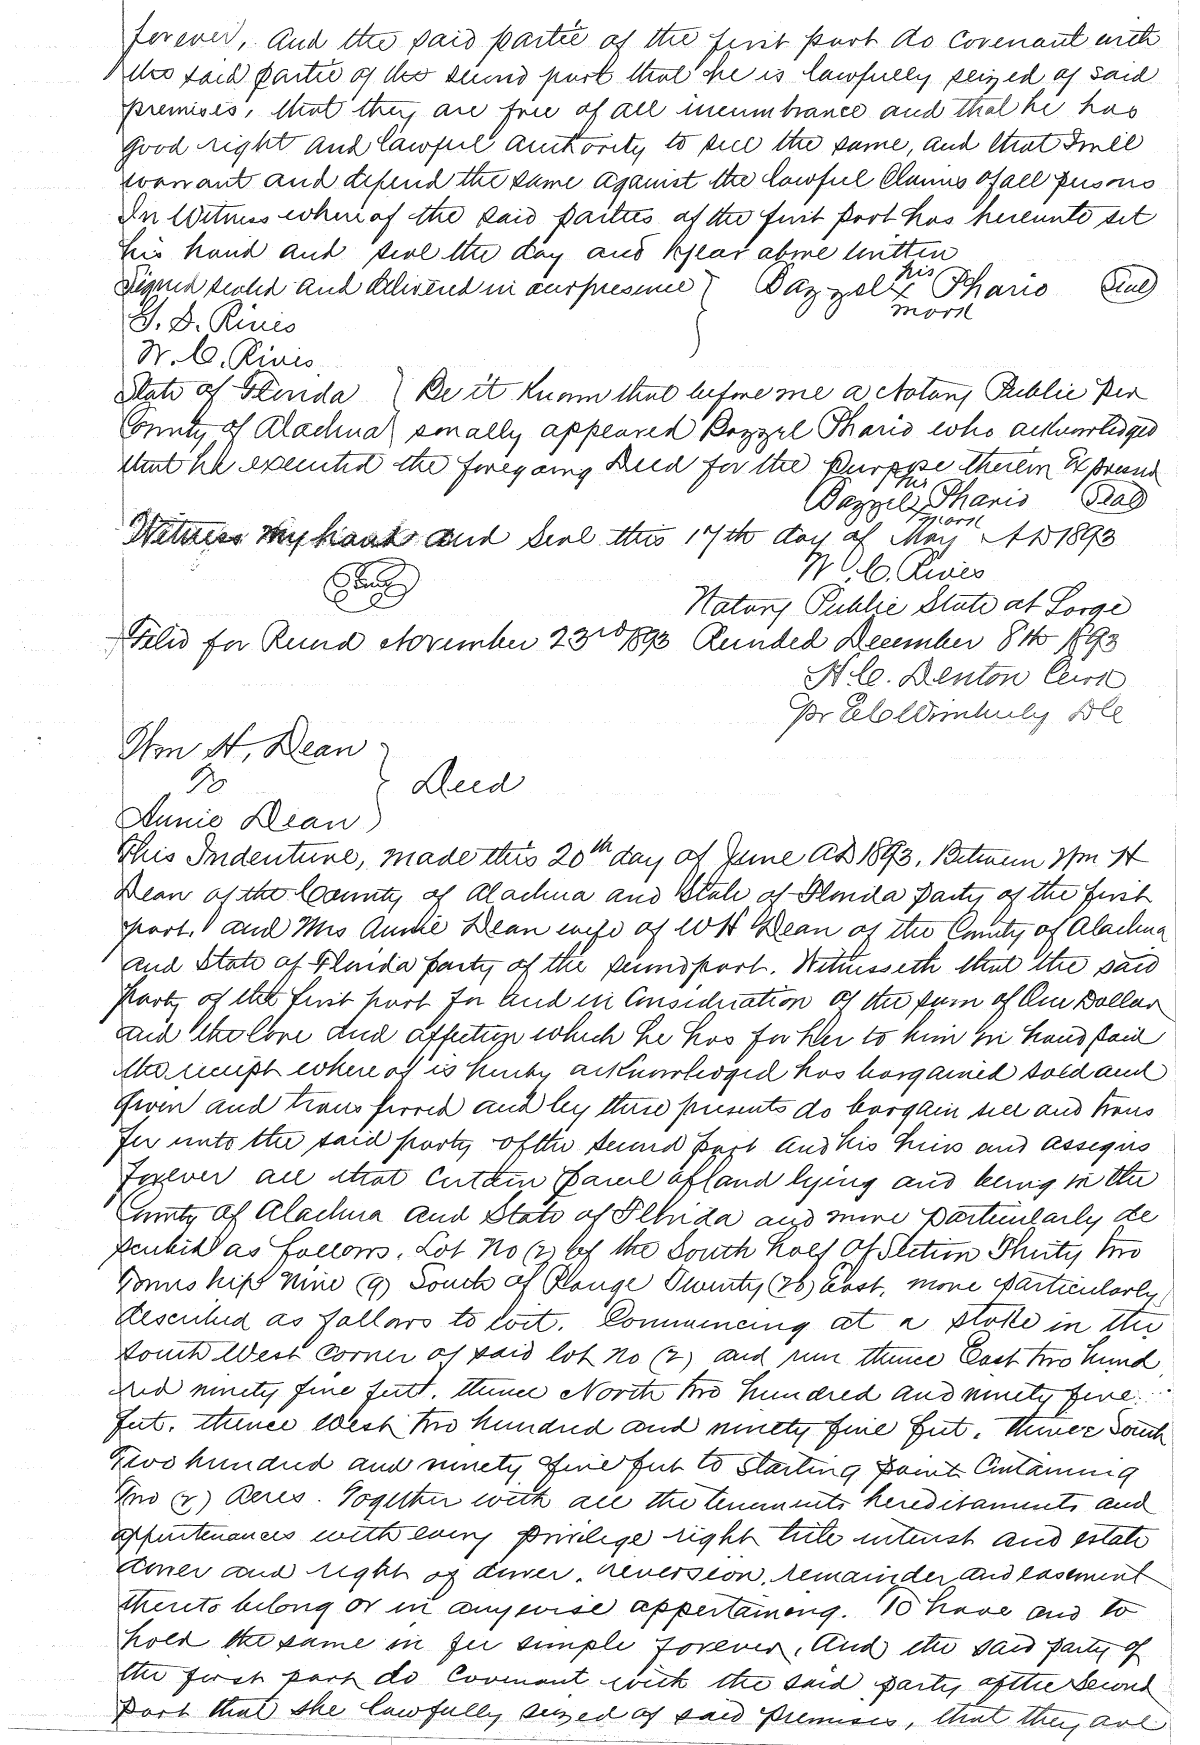 forever, And the said partie of the first part do covenant with
the said partie of the second part that he is lawfully seized of said
premises, that they are free of all incumbrance and that he has
good right and lawful authority to sell the same, and that I will
warrant and defend the same against the lawful Claims of all persons
In Witness whereof the said parties of the first part has hereunto set
his hand and seal the day and year above written
Signed sealed and delivered in our presence } Bazzel his X mark Phario Seal
G. S. Rives
W. C. Rives
State of Florida } Be it Known that before me a Notary Public per
County of Alachua } sonally appeared Bazzel Phario who acknowledged
that he executed the foregoing Deed for the Purpose therein Expressed
Bazzel his X mark Phario Seal
Witness my hand and Seal this 17th day of May AD 1893
W. C. Rives
Seal
Notary Public State at Large
Filed for Record November 23rd 1893 Recorded December 8th 1893
H. C. Denton Clerk
Pr E C Wimberly DC
Wm H. Dean
To } Deed
Annie Dean
This Indenture, made this 20th day of June AD 1893. Between Wm H
Dean of the County of Alachua and State of Florida Party of the first
part, and Mrs Annie Dean wife of W H Dean of the County of Alachua
and State of Florida party of the second part. Witnesseth that the said
Party of the first part for and in Consideration of the sum of One Dollar
and the love and affection which he has for her to him in hand paid
the receipt whereof is hereby acknowledged has bargained sold and
given and transferred and by these presents do bargain sell and trans
fer unto the said party of the second part and his heirs and assigns
forever all that certain parcel of land lying and being in the
County of Alachua and State of Florida and more particularly de
scribed as follows. Lot No (2) of the South half Of Section Thirty two
Township Nine (9) South of Range Twenty (20) East, more particularly
described as follows to wit. Commencing at a stake in the
South West corner of said lot no (2) and run thence East two hund
red ninety five feet. thence North two hundred and ninety five
feet. thence West two hundred and ninety five feet. thence South
Two hundred and ninety five feet to starting point Containing
Two (2) Acres. Together with all the tenements hereditaments and
appurtenances with every privilege right title interest and estate
dower and right of dower, reversion, remainder and easement
thereto belong or in anywise appertaining. To have and to
hold the same in fee simple forever. And the said party of
the first part do covenant with the said party of the second
part that she lawfully seized of said premises, that they are